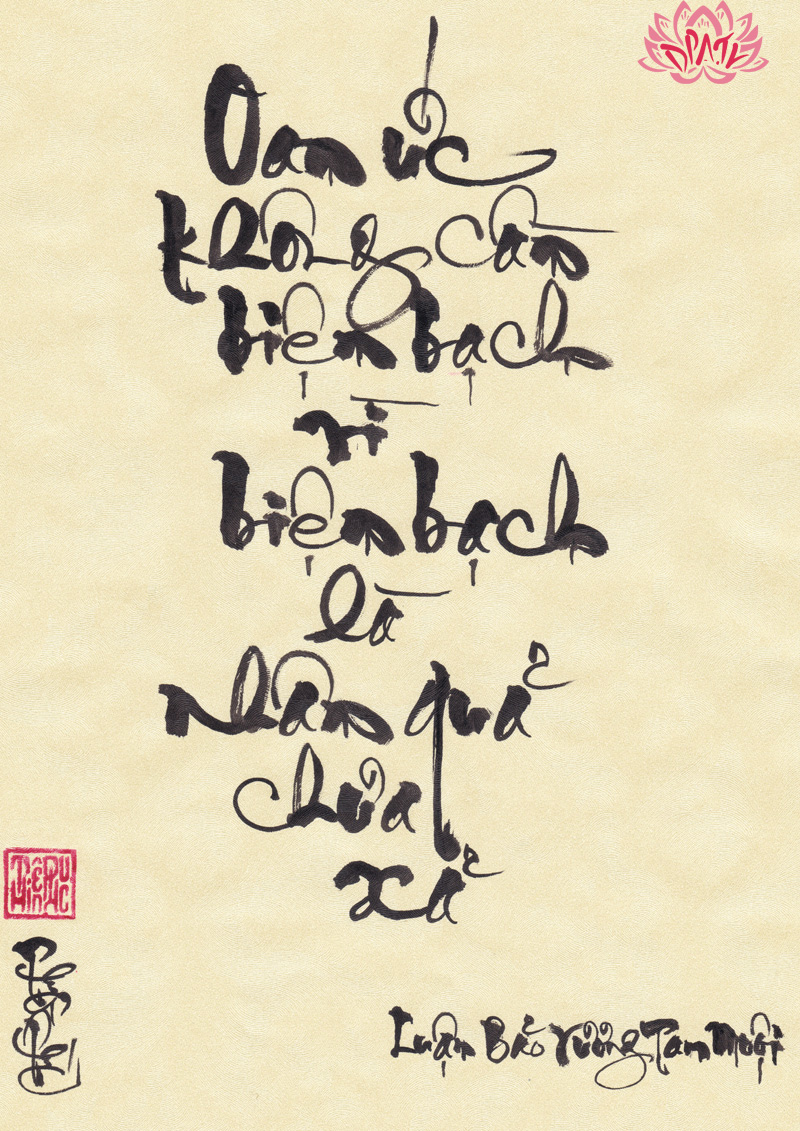 ĐPATV
Oan ức
không cần
biện bạch
vì
biện bạch
là
nhân quả
chưa
xả
Luận Bảo Vương Tam Muội